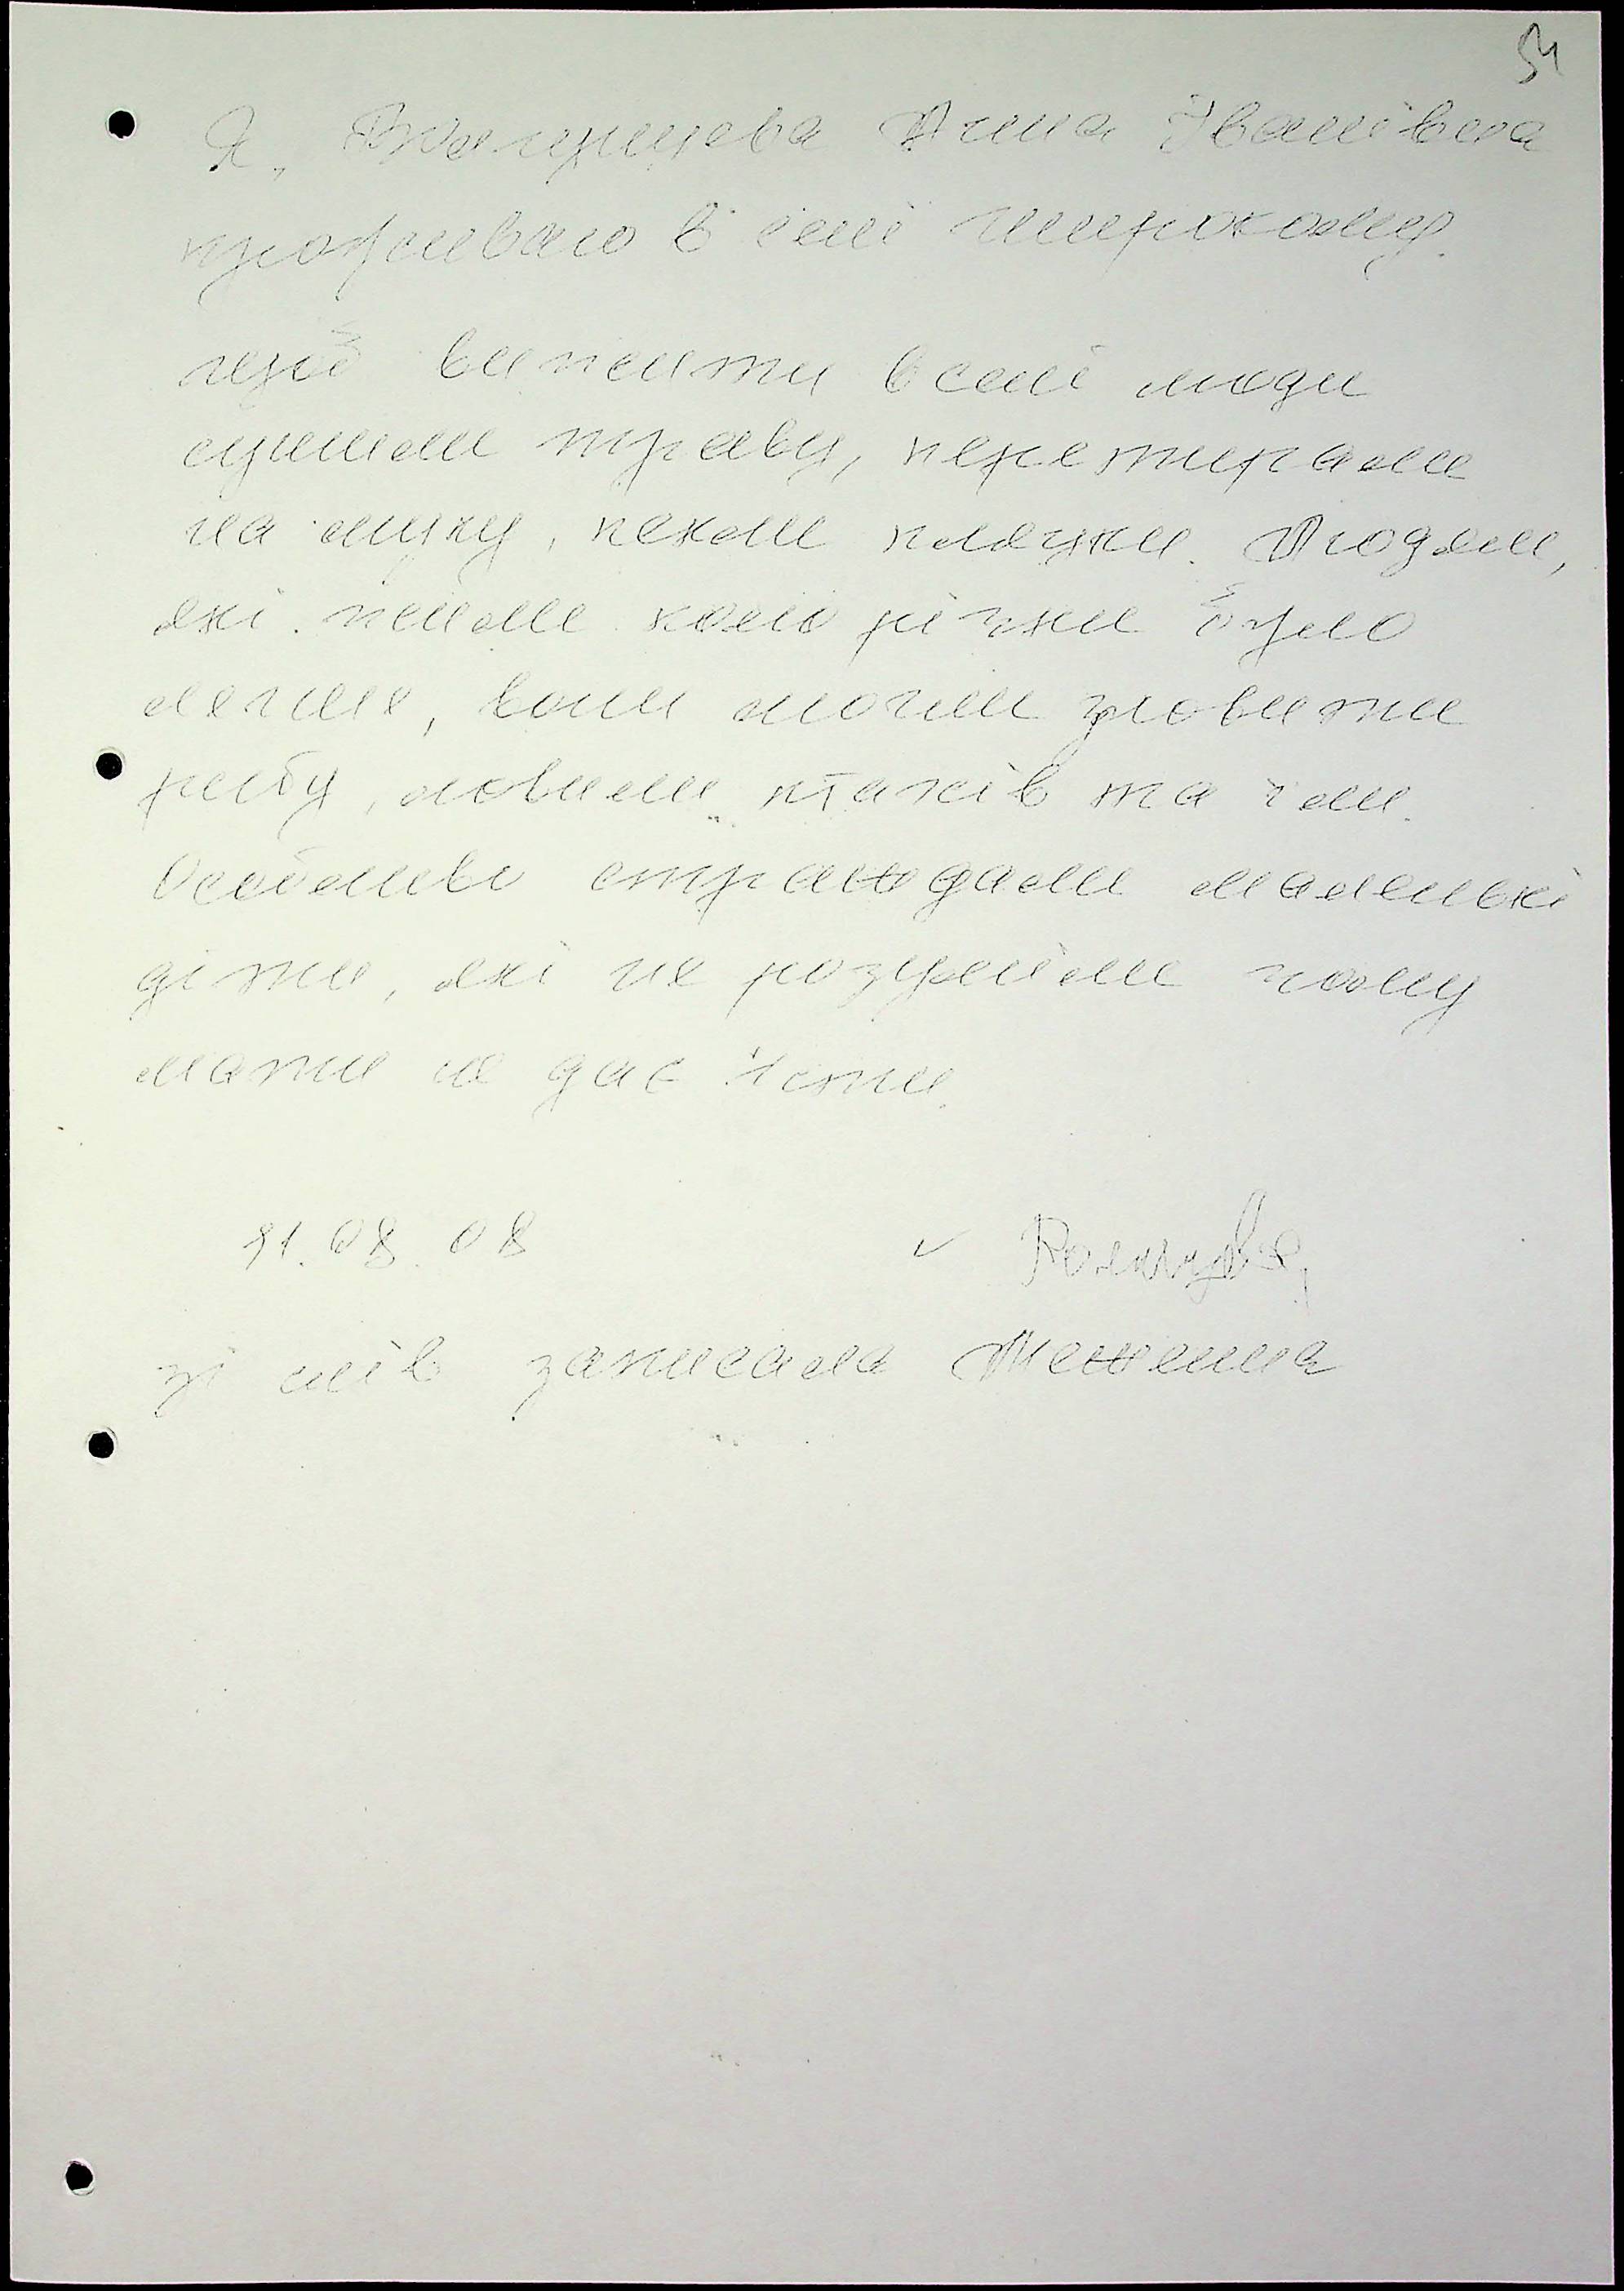 54
Я, Анна Іванівна
проживаю в селі Широкому.
щоб вижити в селі люди
сушили траву, перетирали
на муку, пекли пляцки. Людям,
які жили коло річки було
легше, вони могли зловити
рибу, ловили птахів та їли.
Особливо страждали маленькі
діти, які не розуміли чому
мати не дає їсти.
08.08
зі слів записала